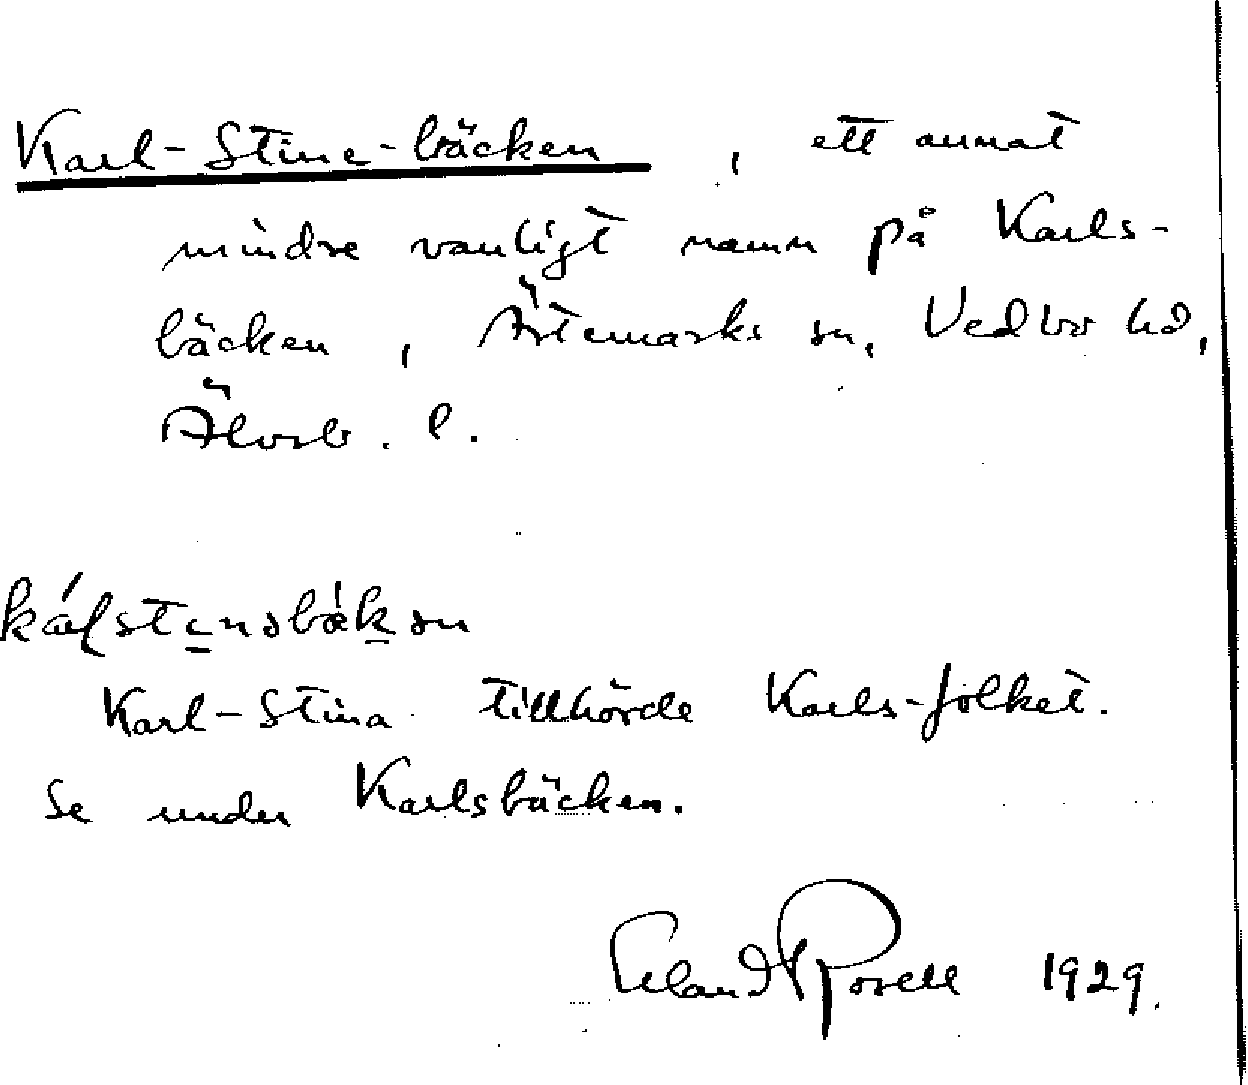 Karl-Stine-bäcken, ett annat
mindre vanligt namn på Karls-
bäcken, Ärtemarks sn, Vedbo hd,
Älvsb. l.
Karl-Stina tillhörde Karls-folket.
Se under Karlsbäcken.
Erland Rosell 1929.